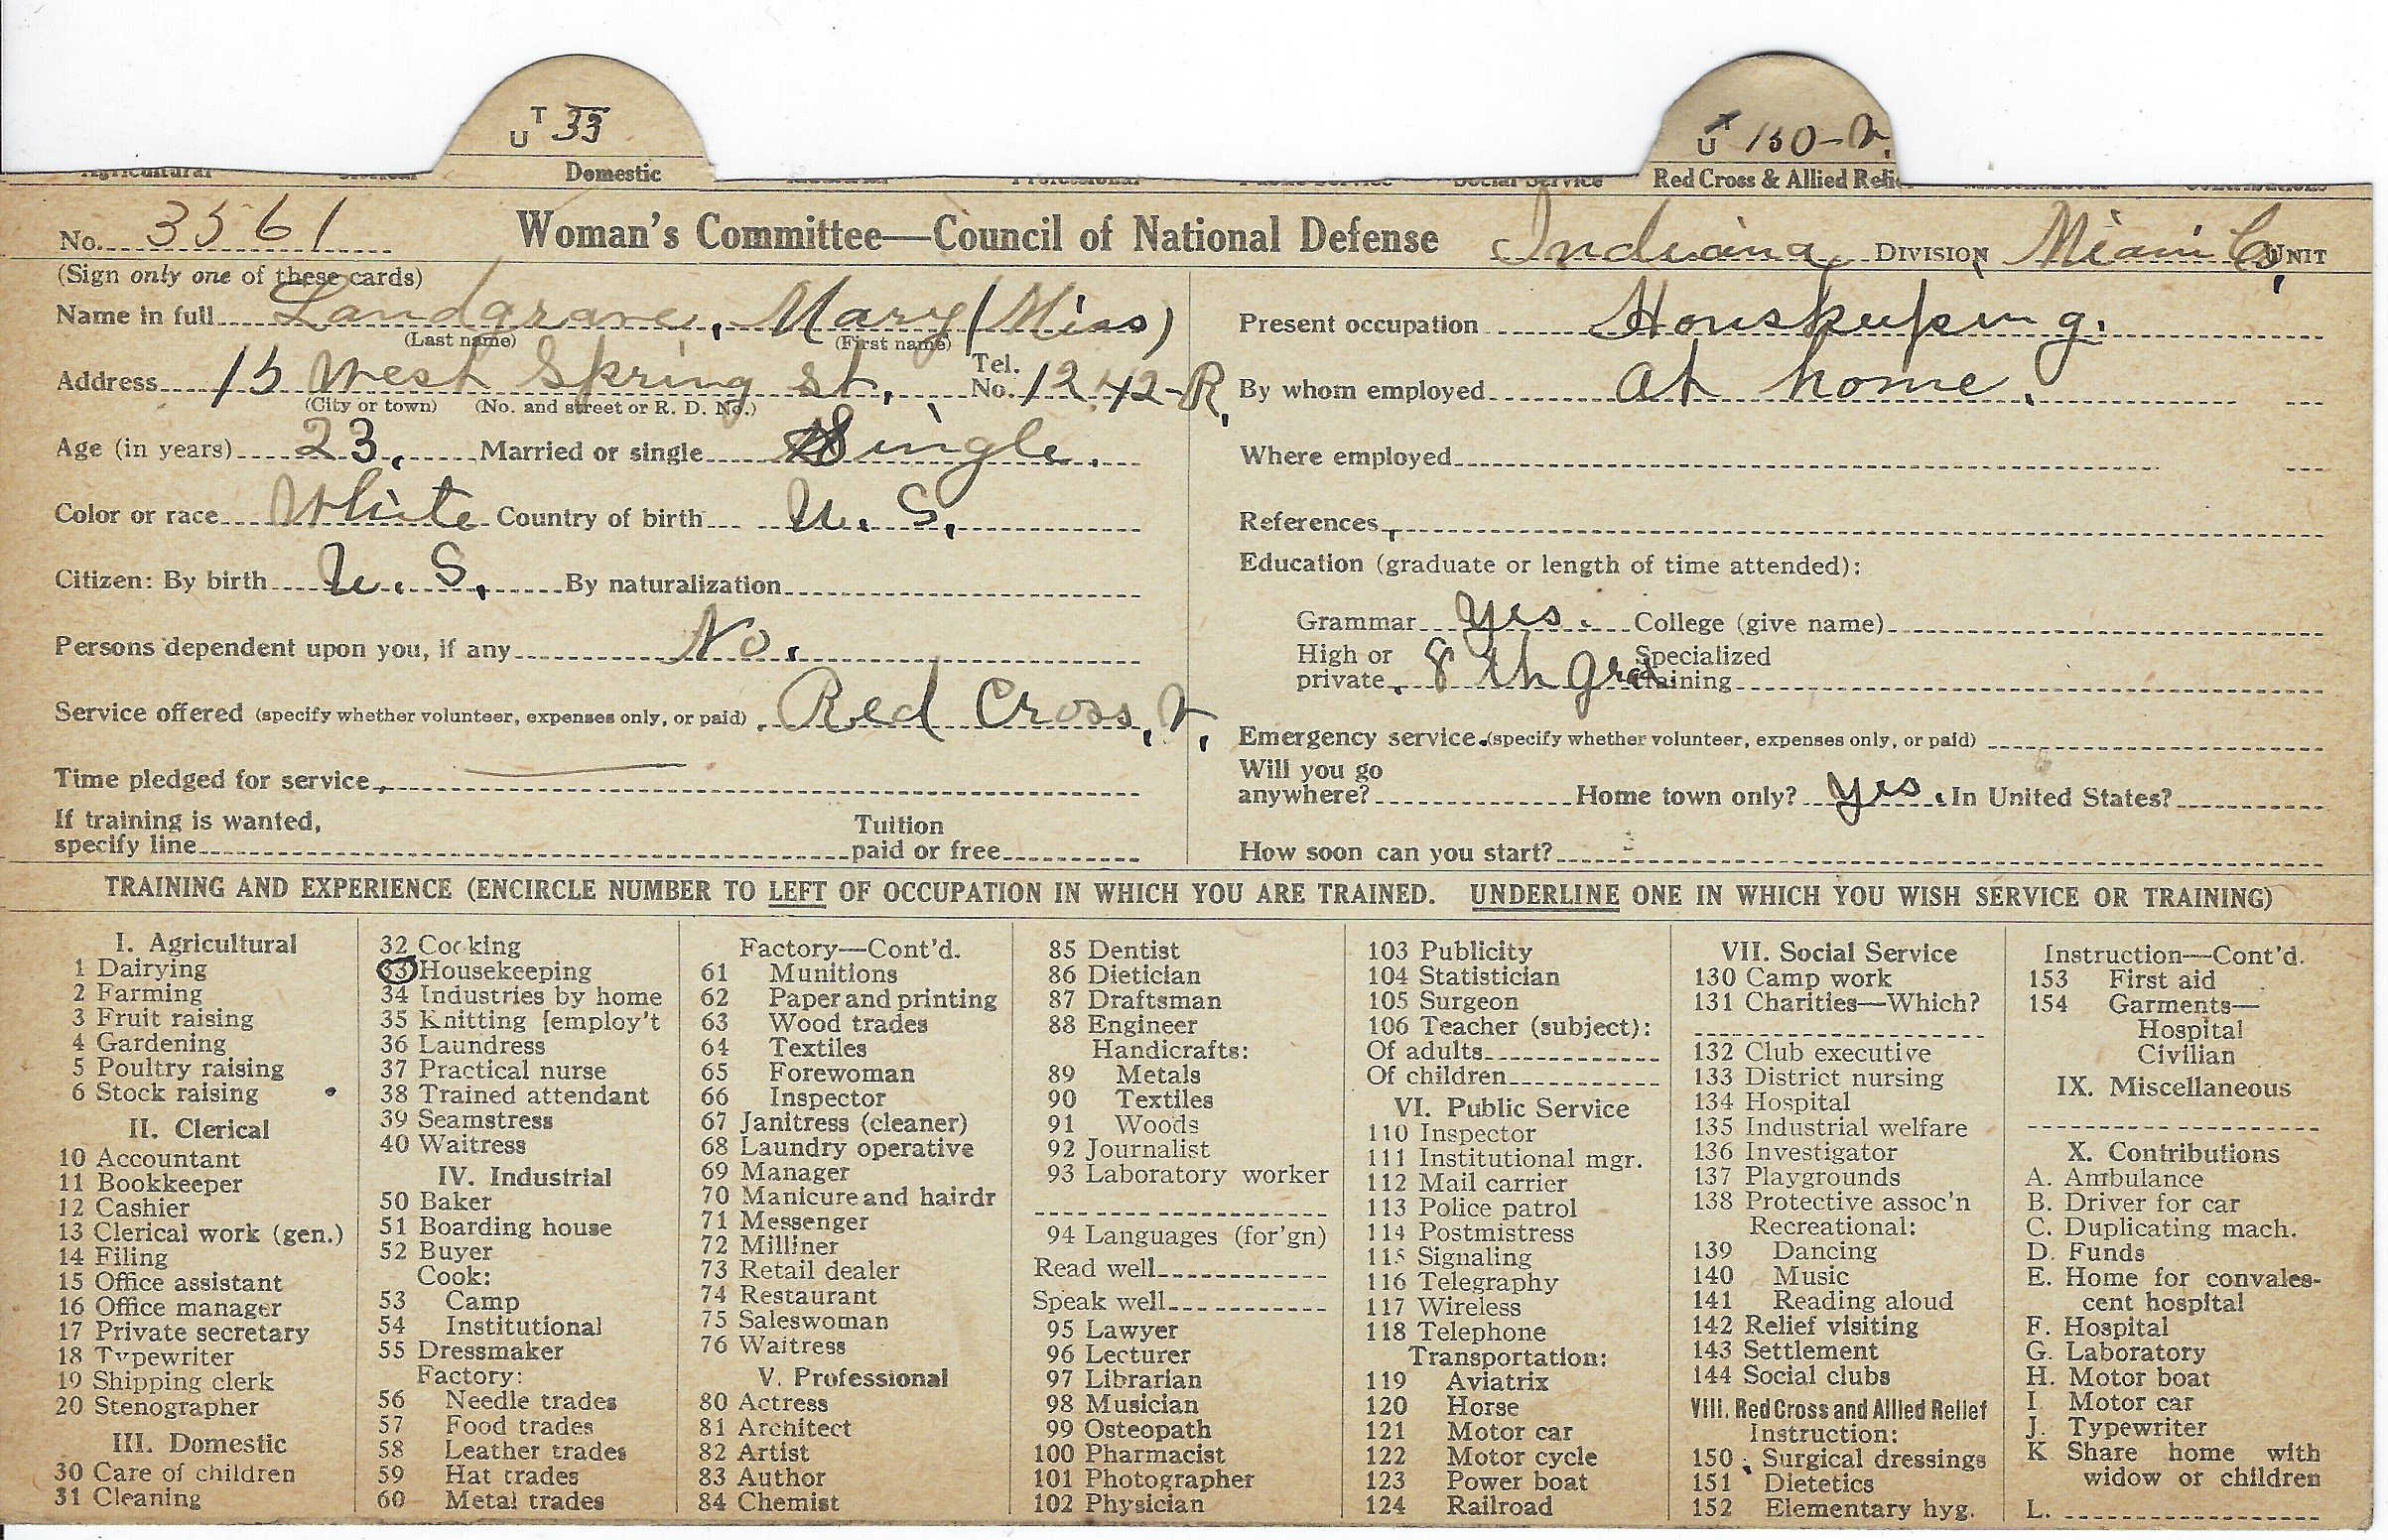 T
U 33
U 150-V.
Domestic
Red Cross & Allied Relie
No. 3561 Woman's Committee—Council of National Defense Indiana DIVISION Miami Co. UNIT
(Sign only one of these cards)
Name in full Landgrave, Mary (Miss)
(Last name) (First name)
Address 15 West Spring St., Tel. No. 1242-R.
(City or town) (No. and street or R. D. No.)
Age (in years) 23. Married or single Single.
Color or race White Country of birth U. S.
Citizen: By birth U. S. By naturalization
Persons dependent upon you, if any No.
Service offered (specify whether volunteer, expenses only, or paid) Red Cross, V.
Time pledged for service
If training is wanted,
specify line Tuition paid or free
Present occupation Houskeeping.
By whom employed At home.
Where employed
References
Education (graduate or length of time attended):
Grammar yes. College (give name)
High or private 8th grad. Specialized training
Emergency service (specify whether volunteer, expenses only, or paid)
Will you go
anywhere? Home town only? yes. In United States?
How soon can you start?
TRAINING AND EXPERIENCE (ENCIRCLE NUMBER TO LEFT OF OCCUPATION IN WHICH YOU ARE TRAINED. UNDERLINE ONE IN WHICH YOU WISH SERVICE OR TRAINING)
I. Agricultural
1 Dairying
2 Farming
3 Fruit raising
4 Gardening
5 Poultry raising
6 Stock raising
II. Clerical
10 Accountant
11 Bookkeeper
12 Cashier
13 Clerical work (gen.)
14 Filing
15 Office assistant
16 Office manager
17 Private secretary
18 Typewriter
19 Shipping clerk
20 Stenographer
III. Domestic
30 Care of children
31 Cleaning
32 Cooking
33 Housekeeping
34 Industries by home
35 Knitting [employ't
36 Laundress
37 Practical nurse
38 Trained attendant
39 Seamstress
40 Waitress
IV. Industrial
50 Baker
51 Boarding house
52 Buyer
Cook:
53 Camp
54 Institutional
55 Dressmaker
Factory:
56 Needle trades
57 Food trades
58 Leather trades
59 Hat trades
60 Metal trades
Factory—Cont'd.
61 Munitions
62 Paper and printing
63 Wood trades
64 Textiles
65 Forewoman
66 Inspector
67 Janitress (cleaner)
68 Laundry operative
69 Manager
70 Manicure and hairdr
71 Messenger
72 Milliner
73 Retail dealer
74 Restaurant
75 Saleswoman
76 Waitress
V. Professional
80 Actress
81 Architect
82 Artist
83 Author
84 Chemist
85 Dentist
86 Dietician
87 Draftsman
88 Engineer
Handicrafts:
89 Metals
90 Textiles
91 Woods
92 Journalist
93 Laboratory worker
94 Languages (for'gn)
Read well
Speak well
95 Lawyer
96 Lecturer
97 Librarian
98 Musician
99 Osteopath
100 Pharmacist
101 Photographer
102 Physician
103 Publicity
104 Statistician
105 Surgeon
106 Teacher (subject):
Of adults
Of children
VI. Public Service
110 Inspector
111 Institutional mgr.
112 Mail carrier
113 Police patrol
114 Postmistress
115 Signaling
116 Telegraphy
117 Wireless
118 Telephone
Transportation:
119 Aviatrix
120 Horse
121 Motor car
122 Motor cycle
123 Power boat
124 Railroad
VII. Social Service
130 Camp work
131 Charities—Which?
132 Club executive
133 District nursing
134 Hospital
135 Industrial welfare
136 Investigator
137 Playgrounds
138 Protective assoc'n
Recreational:
139 Dancing
140 Music
141 Reading aloud
142 Relief visiting
143 Settlement
144 Social clubs
VIII. Red Cross and Allied Relief
Instruction:
150 Surgical dressings
151 Dietetics
152 Elementary hyg.
Instruction—Cont'd.
153 First aid
154 Garments—
Hospital
Civilian
IX. Miscellaneous
X. Contributions
A. Ambulance
B. Driver for car
C. Duplicating mach.
D. Funds
E. Home for convales-
cent hospital
F. Hospital
G. Laboratory
H. Motor boat
I Motor car
J. Typewriter
K Share home with
widow or children
L.